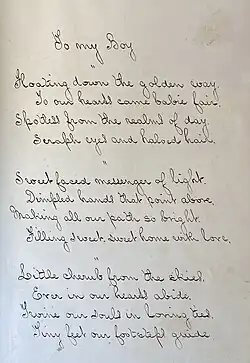 To my Boy
Floating down the golden way
To our hearts came babie fair.
Spotless from the realms of day
Seraph eyes and haloed hair.
"
Sweet faced messenger of light.
Dimpled hands that point above,
Making all our path so bright.
Filling sweet, sweet home with love,
"
Little cherub from the skies.
Ever in our hearts abide,
Twine our souls in loving ties.
Tiny feet our footsteps guide